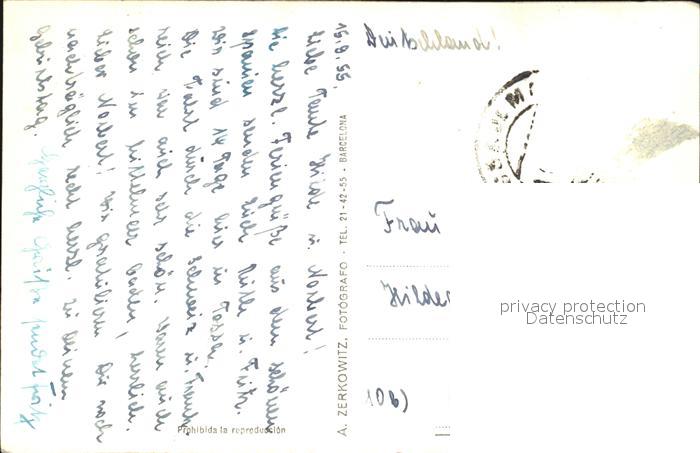 15.8.55.
Liebe Tante Hilde u. Norbert!
Die herzl. Feriengrüße aus dem schönen
Spanien senden Euch Ruth u. Fritz.
Wir sind 14 Tage hier in Tossa.
Die Fahrt durch die Schweiz u. Frank-
reich war auch sehr schön. Waren auch
schon im Mittelmeer baden! Herrlich.
Lieber Norbert! Wir gratulieren Dir noch
nachträglich recht herzl. zu Deinem
Geburtstag.
Prohibida la reproducción
A. ZERKOWITZ, FOTÓGRAFO - TEL. 21-42-55 - BARCELONA
Deutschland!
Frau
Hilde
10b)
privacy protection
Datenschutz